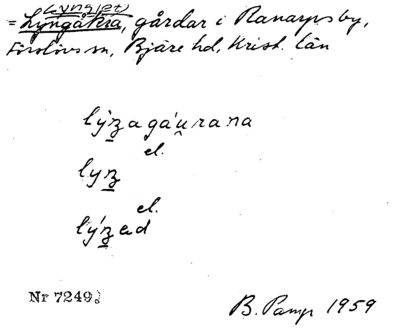 (Lynget)
= Lyngåkra, gårdar i Ranarps by,
Förslövs sn, Bjäre hd, Krist. län
lýʒagáu̯rana
el.
lyʒ
el.
lýʒəd
Nr 7249.
B. Pamp 1959